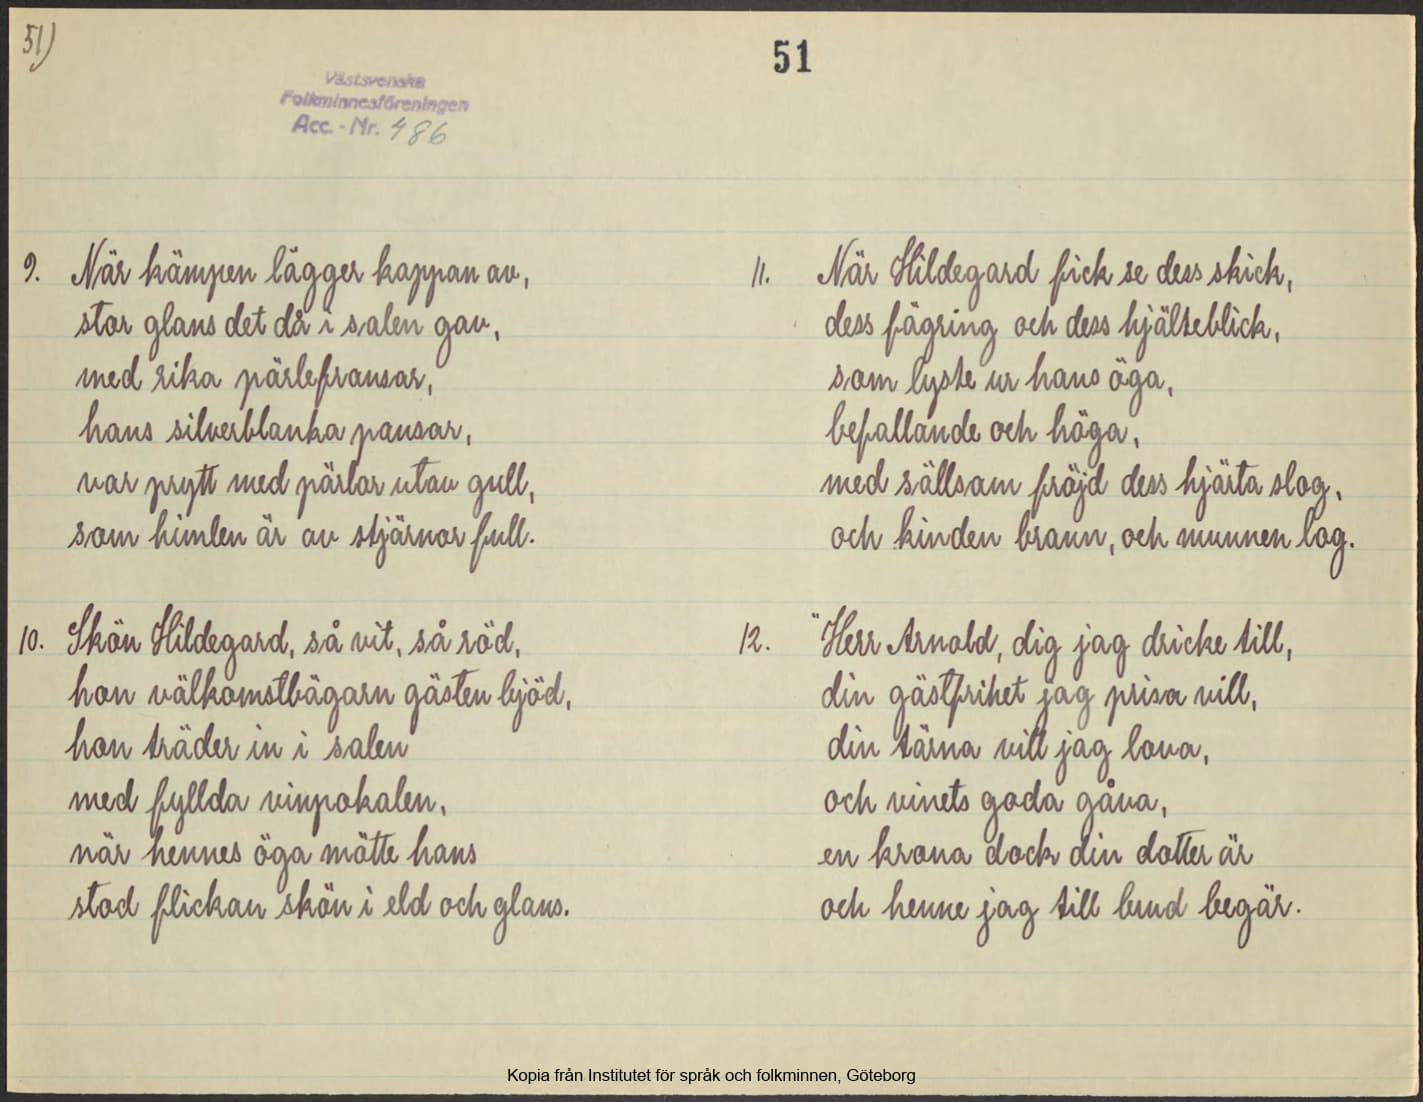 51)
51
Västsvenska
Folkminnesföreningen
Acc. - Nr. 486
9. När kämpen lägger kappan av,
stor glans det då i salen gav,
med rika pärlefransar,
hans silverblanka pansar,
var prytt med pärlor utav gull,
som himlen är av stjärnor full.
10. Skön Hildegard, så vit, så röd,
hon välkomstbägarn gästen bjöd,
hon träder in i salen
med fyllda vinpokalen,
när hennes öga mötte hans
stod flickan skön i eld och glans.
11. När Hildegard fick se dess skick,
dess fägring och dess hjälteblick,
som lyste ur hans öga,
befallande och höga,
med sällsam fröjd dess hjärta slog,
och kinden brann, och munnen log.
12. "Herr Arnold, dig jag dricke till,
din gästfrihet jag prisa vill,
din tärna vill jag lova,
och vinets goda gåva,
en krona dock din dotter är
och henne jag till brud begär.
Kopia från Institutet för språk och folkminnen, Göteborg